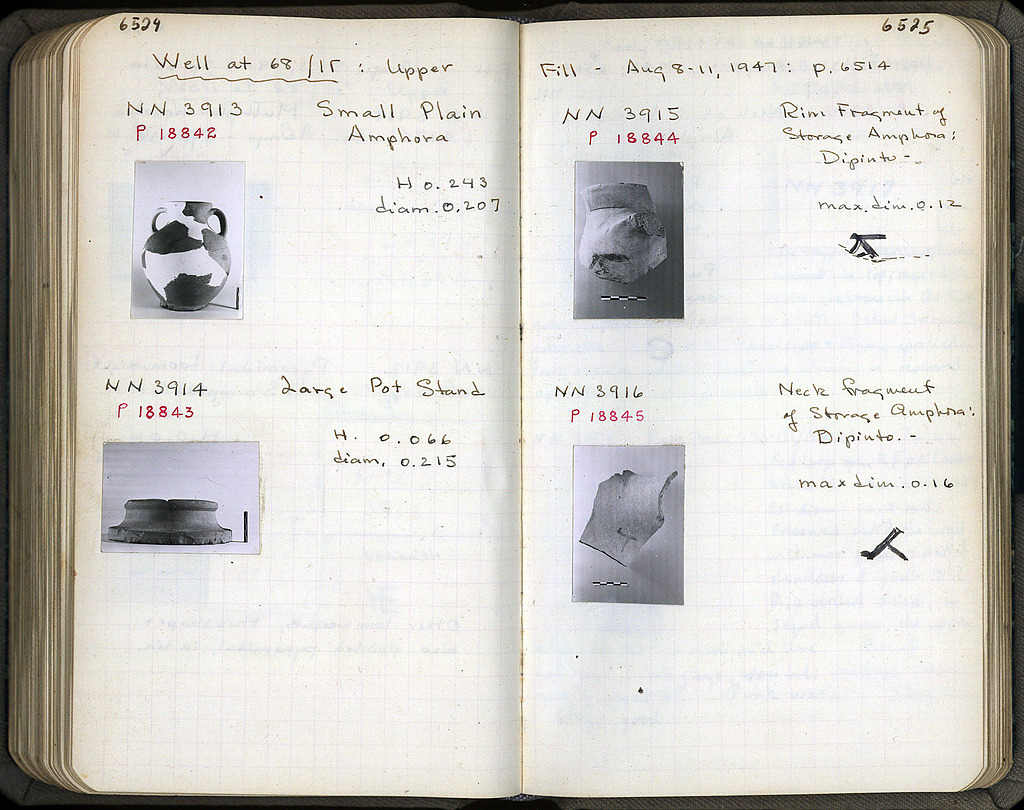 6524
Well at 68/ΙΓ : Upper
NN 3913 Small Plain
P 18842 Amphora
H 0.243
diam. 0.207
NN 3914 Large Pot Stand
P 18843
H. 0.066
diam. 0.215
6525
Fill - Aug 8-11, 1947: p. 6514
NN 3915 Rim Fragment of
P 18844 Storage Amphora:
Dipinto -
max. dim. 0.12
NN 3916 Neck fragment
P 18845 of Storage Amphora:
Dipinto. -
max dim. 0.16